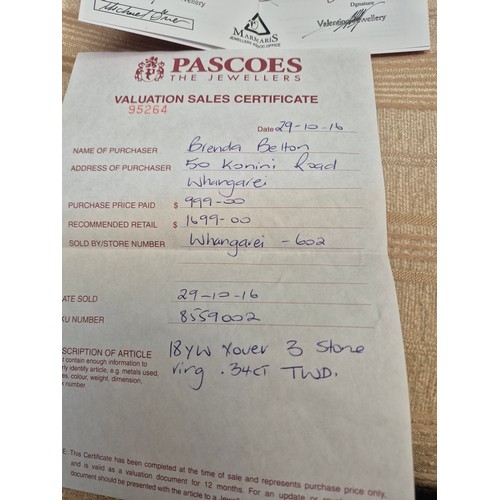 Michael Grue
Jewellery
MARMARIS
JEWELLERY HEAD OFFICE
Signature
Valentino Jewellery
PASCOES
THE JEWELLERS
VALUATION SALES CERTIFICATE
95264
Date 29-10-16
NAME OF PURCHASER Brenda Belton
ADDRESS OF PURCHASER 50 Konini Road
Whangarei
PURCHASE PRICE PAID $ 999-00
RECOMMENDED RETAIL $ 1699-00
SOLD BY/STORE NUMBER Whangarei - 602
ATE SOLD 29-10-16
KU NUMBER 8559002
ESCRIPTION OF ARTICLE 18YW Xover 3 Stone
t contain enough information to
rly identify article, e.g. metals used, ring .34ct TWD.
es, colour, weight, dimension,
e number.
E: This Certificate has been completed at the time of sale and represents purchase price only,
and is valid as a valuation document for 12 months. For an update or
document should be presented with the article to a Jewel